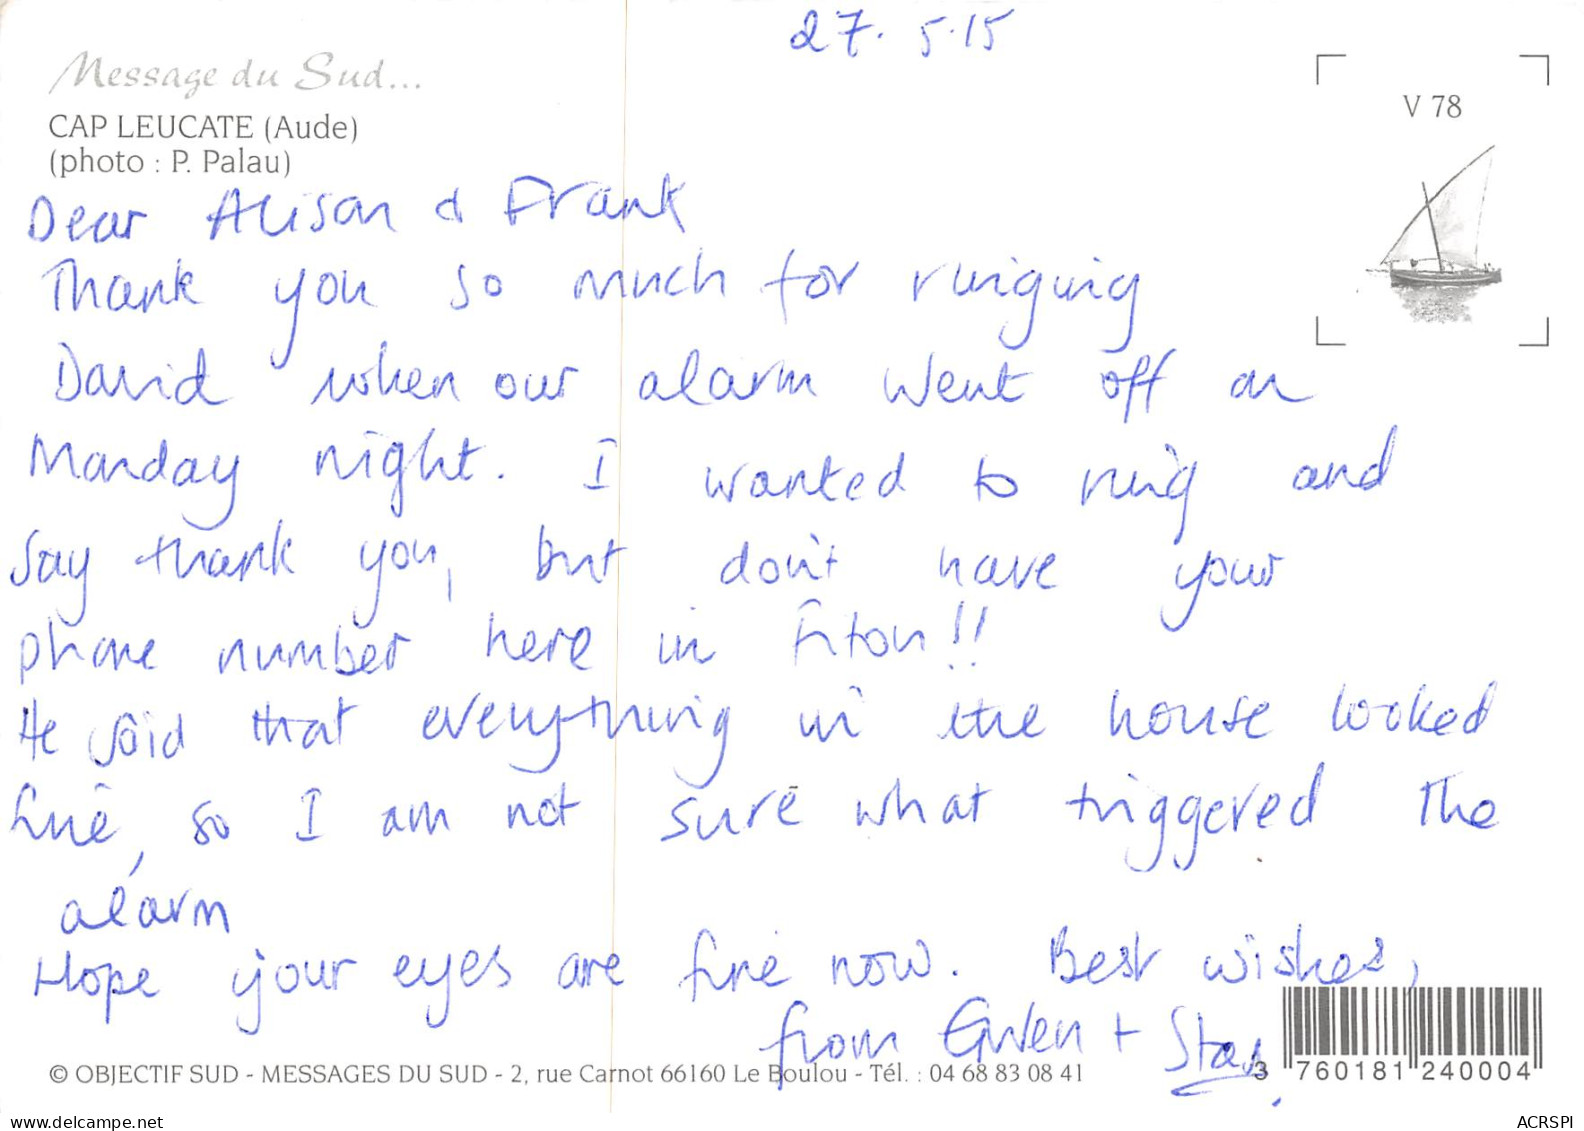 27.5.15
Message du Sud...
CAP LEUCATE (Aude)
(photo : P. Palau)
V 78
Dear Alison & Frank
Thank you so much for ringing
David when our alarm went off on
Monday night. I wanted to ring and
say thank you, but don't have your
phone number here in Fitou!!
He said that everything in the house looked
fine, so I am not sure what triggered the
alarm
Hope your eyes are fine now. Best wishes,
from Gwen + Stas.
© OBJECTIF SUD - MESSAGES DU SUD - 2, rue Carnot 66160 Le Boulou - Tél. : 04 68 83 08 41
3 760181 240004
delcampe.net
ACRSPI